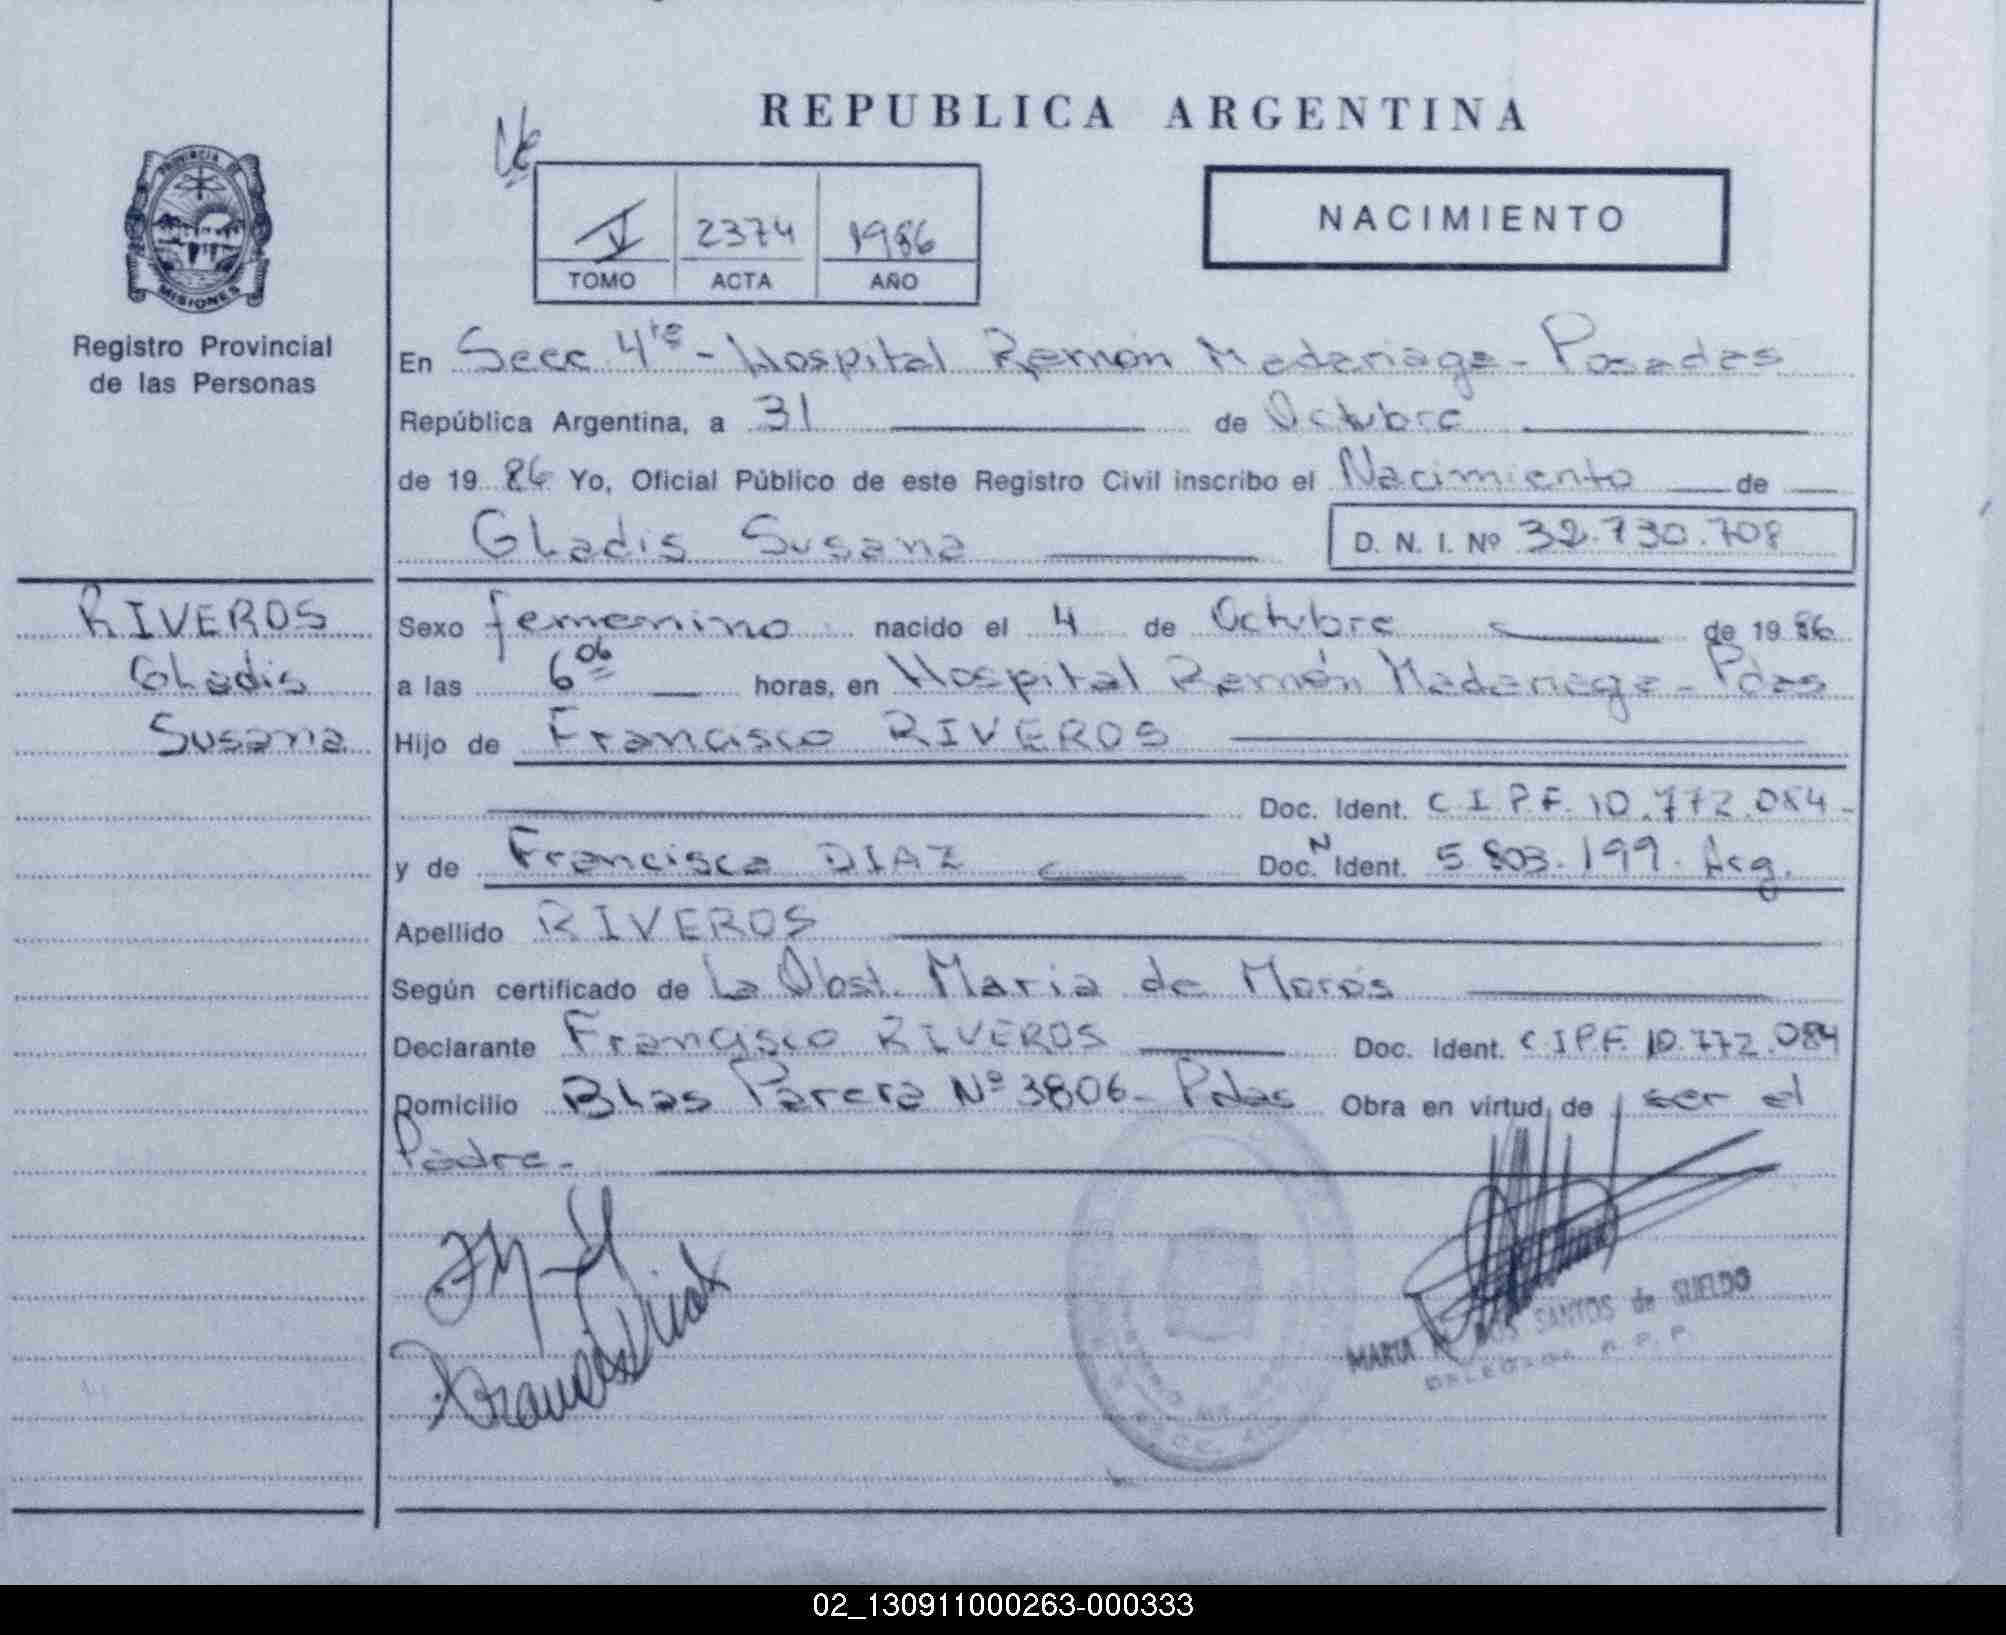 REPUBLICA ARGENTINA
PROVINCIA DE
MISIONES
Registro Provincial
de las Personas
V 2374 1986
TOMO ACTA AÑO
NACIMIENTO
En Secc 4ta - Hospital Ramón Madariaga - Posadas
República Argentina, a 31 de Octubre
de 1986 Yo, Oficial Público de este Registro Civil inscribo el Nacimiento de
Gladis Susana D. N. I. Nº 32.730.708
RIVEROS
Gladis
Susana
Sexo femenino nacido el 4 de Octubre de 1986
a las 6 06 horas, en Hospital Ramón Madariaga - Pdas
Hijo de Francisco RIVEROS
Doc. Ident. C.I.P.F. 10.772.084-
y de Francisca DIAZ Doc. N Ident. 5.803.199. Arg.
Apellido RIVEROS
Según certificado de La Obst. Maria de Morós
Declarante Francisco RIVEROS Doc. Ident. CIPF. 10.772.084
Domicilio Blas Parera Nº 3806- Pdas Obra en virtud de ser el
Padre.-
MARIA DOS SANTOS de SUELDO
DELEGADA R. P. P.
02_130911000263-000333